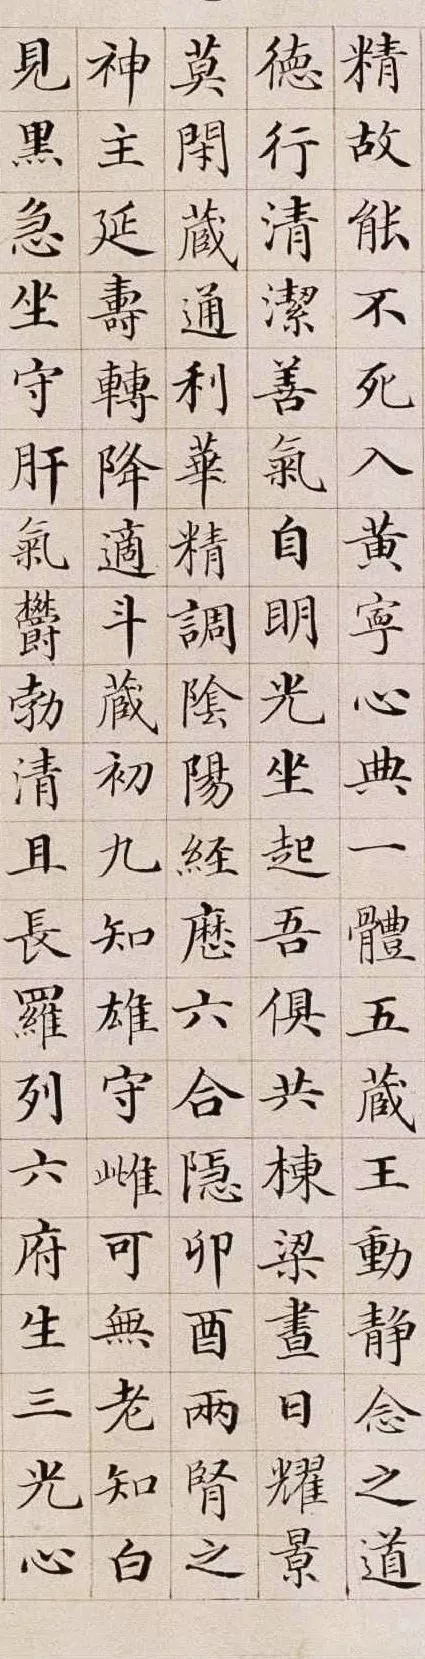 精故能不死入黃寧心典一體五藏王動靜念之道
德行清潔善氣自明光坐起吾俱共棟梁晝日耀景
莫閑藏通利華精調陰陽經歷六合隱卯酉兩腎之
神主延壽轉降適斗藏初九知雄守雌可無老知白
見黑急坐守肝氣欝勃清且長羅列六府生三光心